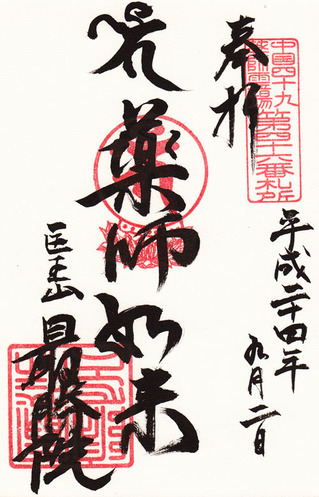 奉拝
中國四十九
薬師霊場
第四十六番札所
平成二十四年
九月二日
薬師如来
医王山
最勝院